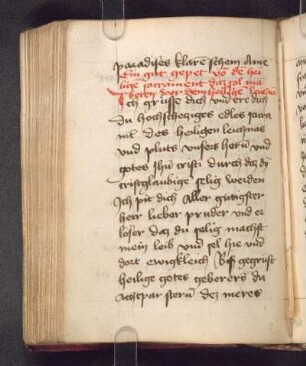 paradises klare schein Ame
Ein gut gepet vo de hei
lige sacrament daz sol ma
beten vor dem heilige leichnā
Ich grüsse dich und ere dich
du hochschetziges edles sacra
mēt des heiligen leichnas
und pluts unsers herren und
gotes ihu cristi durch daz dy
cristglaubige selig werden
Ich pit dich aller gütigster
herr lieber pruder und er
loser daz du selig machst
mein leib und sel hie und
dort ewigkleich Bis gegrust
heilige gotes gebererī du
achtpar stern dez meres